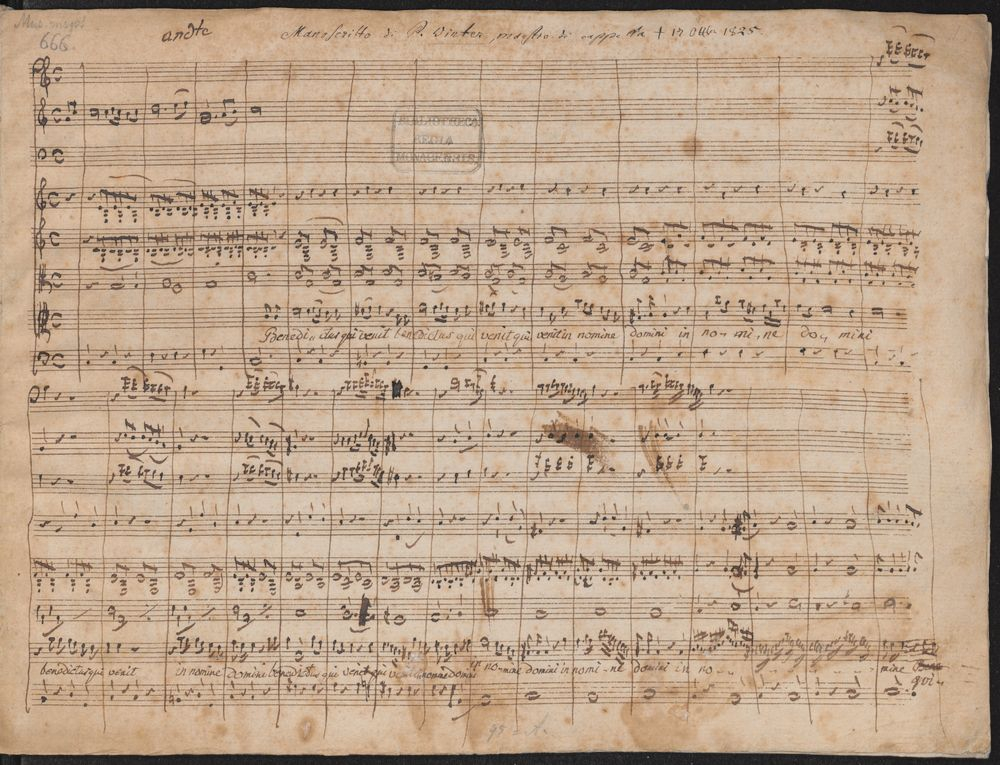 Mus. mspt.
666.
andte
Manoscritto di P. Winter, maestro di cappella † 17 Ottbr 1825
BIBLIOTHECA
REGIA
MONACENSIS
Benedictus qui venit benedictus qui venit qui venit in nomine domini in no mi ne do mini
benedictus qui venit in nomine Domini benedictus qui venit qui venit in nomine domini no-mine domini in nomi-ne domini in no - - mine
qui